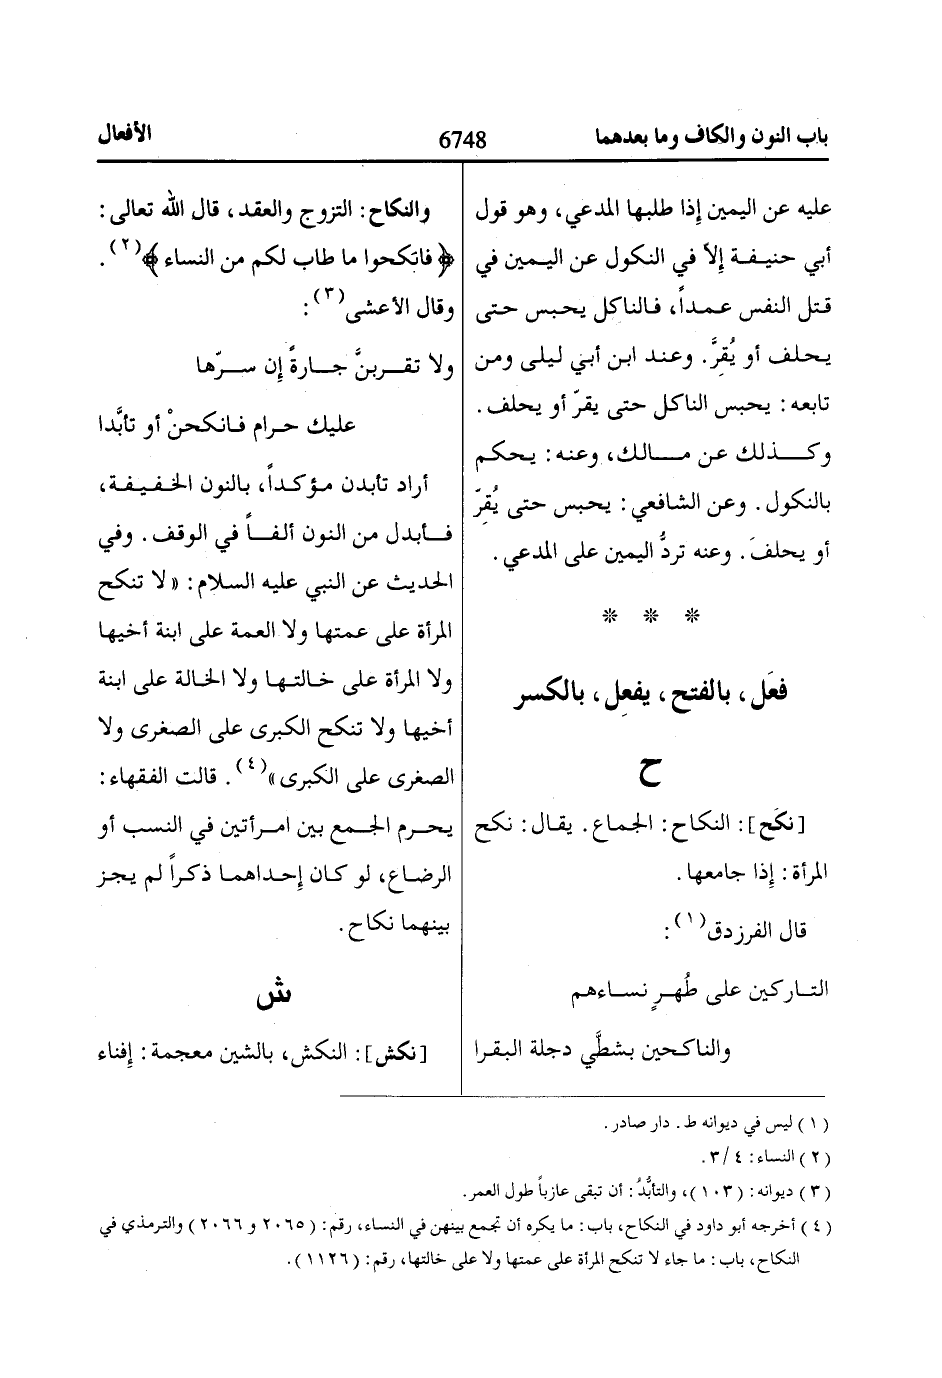 باب النون والكاف وما بعدهما
6748
الأفعال
عليه عن اليمين إذا طلبها المدعي، وهو قول
أبي حنيفة إلاّ في النكول عن اليمين في
قتل النفس عمداً، فالناكل يحبس حتى
يحلف أو يُقِرَّ. وعند ابن أبي ليلى ومن
تابعه: يحبس الناكل حتى يقرّ أو يحلف.
وكذلك عن مالك، وعنه: يحكم
بالنكول. وعن الشافعي: يحبس حتى يُقِرّ
أو يحلفَ. وعنه تردُّ اليمين على المدعي.
* * *
فعَل، بالفتح، يفعِل، بالكسر
ح
[نكَح]: النكاح: الجماع. يقال: نكح
المرأة: إذا جامعها.
قال الفرزدق(١):
التاركين على طُهرٍ نساءهم
والناكحين بشطَّي دجلة البقرا
والنكاح: التزوج والعقد، قال الله تعالى:
﴿فانكحوا ما طاب لكم من النساء﴾(٢).
وقال الأعشى(٣):
ولا تقربنَّ جارةً إن سرّها
عليك حرام فانكحنْ أو تأبَّدا
أراد تأبدن مؤكداً، بالنون الخفيفة،
فأبدل من النون ألفاً في الوقف. وفي
الحديث عن النبي عليه السلام: «لا تنكح
المرأة على عمتها ولا العمة على ابنة أخيها
ولا المرأة على خالتها ولا الخالة على ابنة
أخيها ولا تنكح الكبرى على الصغرى ولا
الصغرى على الكبرى»(٤). قالت الفقهاء:
يحرم الجمع بين امرأتين في النسب أو
الرضاع، لو كان إحداهما ذكراً لم يجز
بينهما نكاح.
ش
[نكش]: النكش، بالشين معجمة: إفناء
(١) ليس في ديوانه ط. دار صادر.
(٢) النساء: ٣/٤.
(٣) ديوانه: (١٠٣)، والتأبُّدُ: أن تبقى عازباً طول العمر.
(٤) أخرجه أبو داود في النكاح، باب: ما يكره أن تجمع بينهن في النساء، رقم: (٢٠٦٥ و ٢٠٦٦) والترمذي في
النكاح، باب: ما جاء لا تنكح المرأة على عمتها ولا على خالتها، رقم: (١١٢٦).